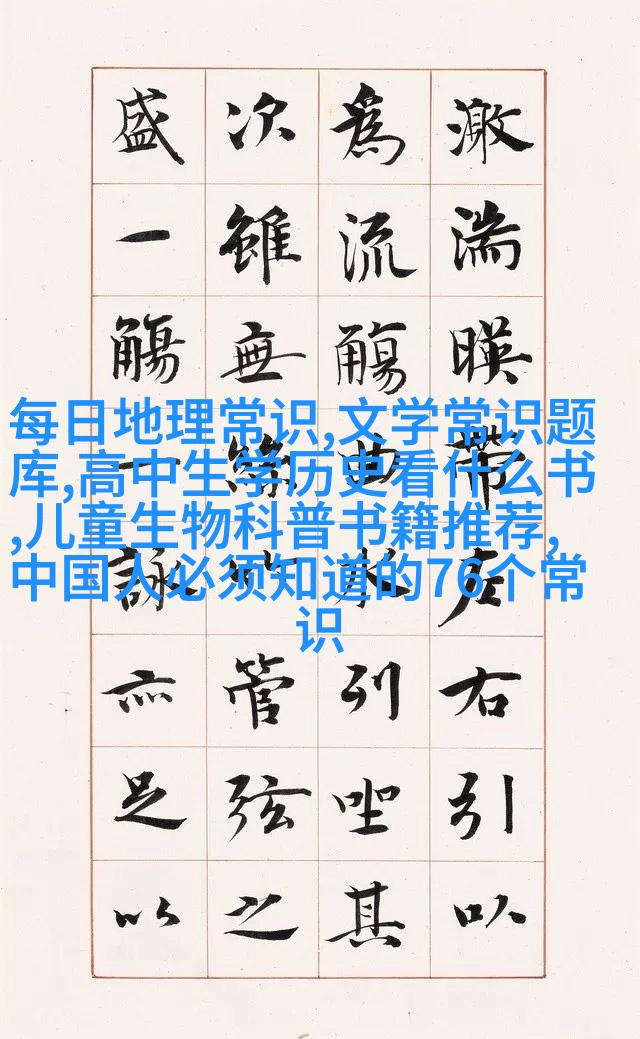 激湍暎帶左右引以
為流觴曲水列坐其
次雖無絲竹管弦之
盛一觴一詠亦足以
每日地理常识,文学常识题
库,高中生学历史看什么书
,儿童生物科普书籍推荐,
中国人必须知道的76个常
识